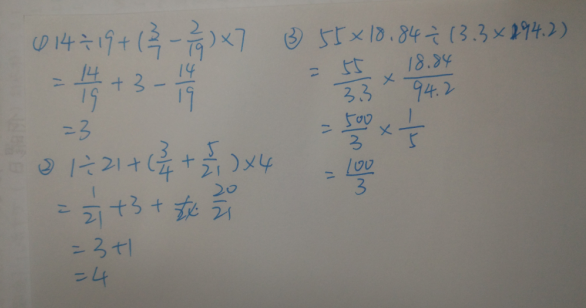 (1) 14÷19+(3/7-2/19)×7
=14/19+3-14/19
=3
② 1÷21+(3/4+5/21)×4
=1/21+3+20/21
=3+1
=4
③ 55×18.84÷(3.3×94.2)
=55/3.3×18.84/94.2
=500/3×1/5
=100/3